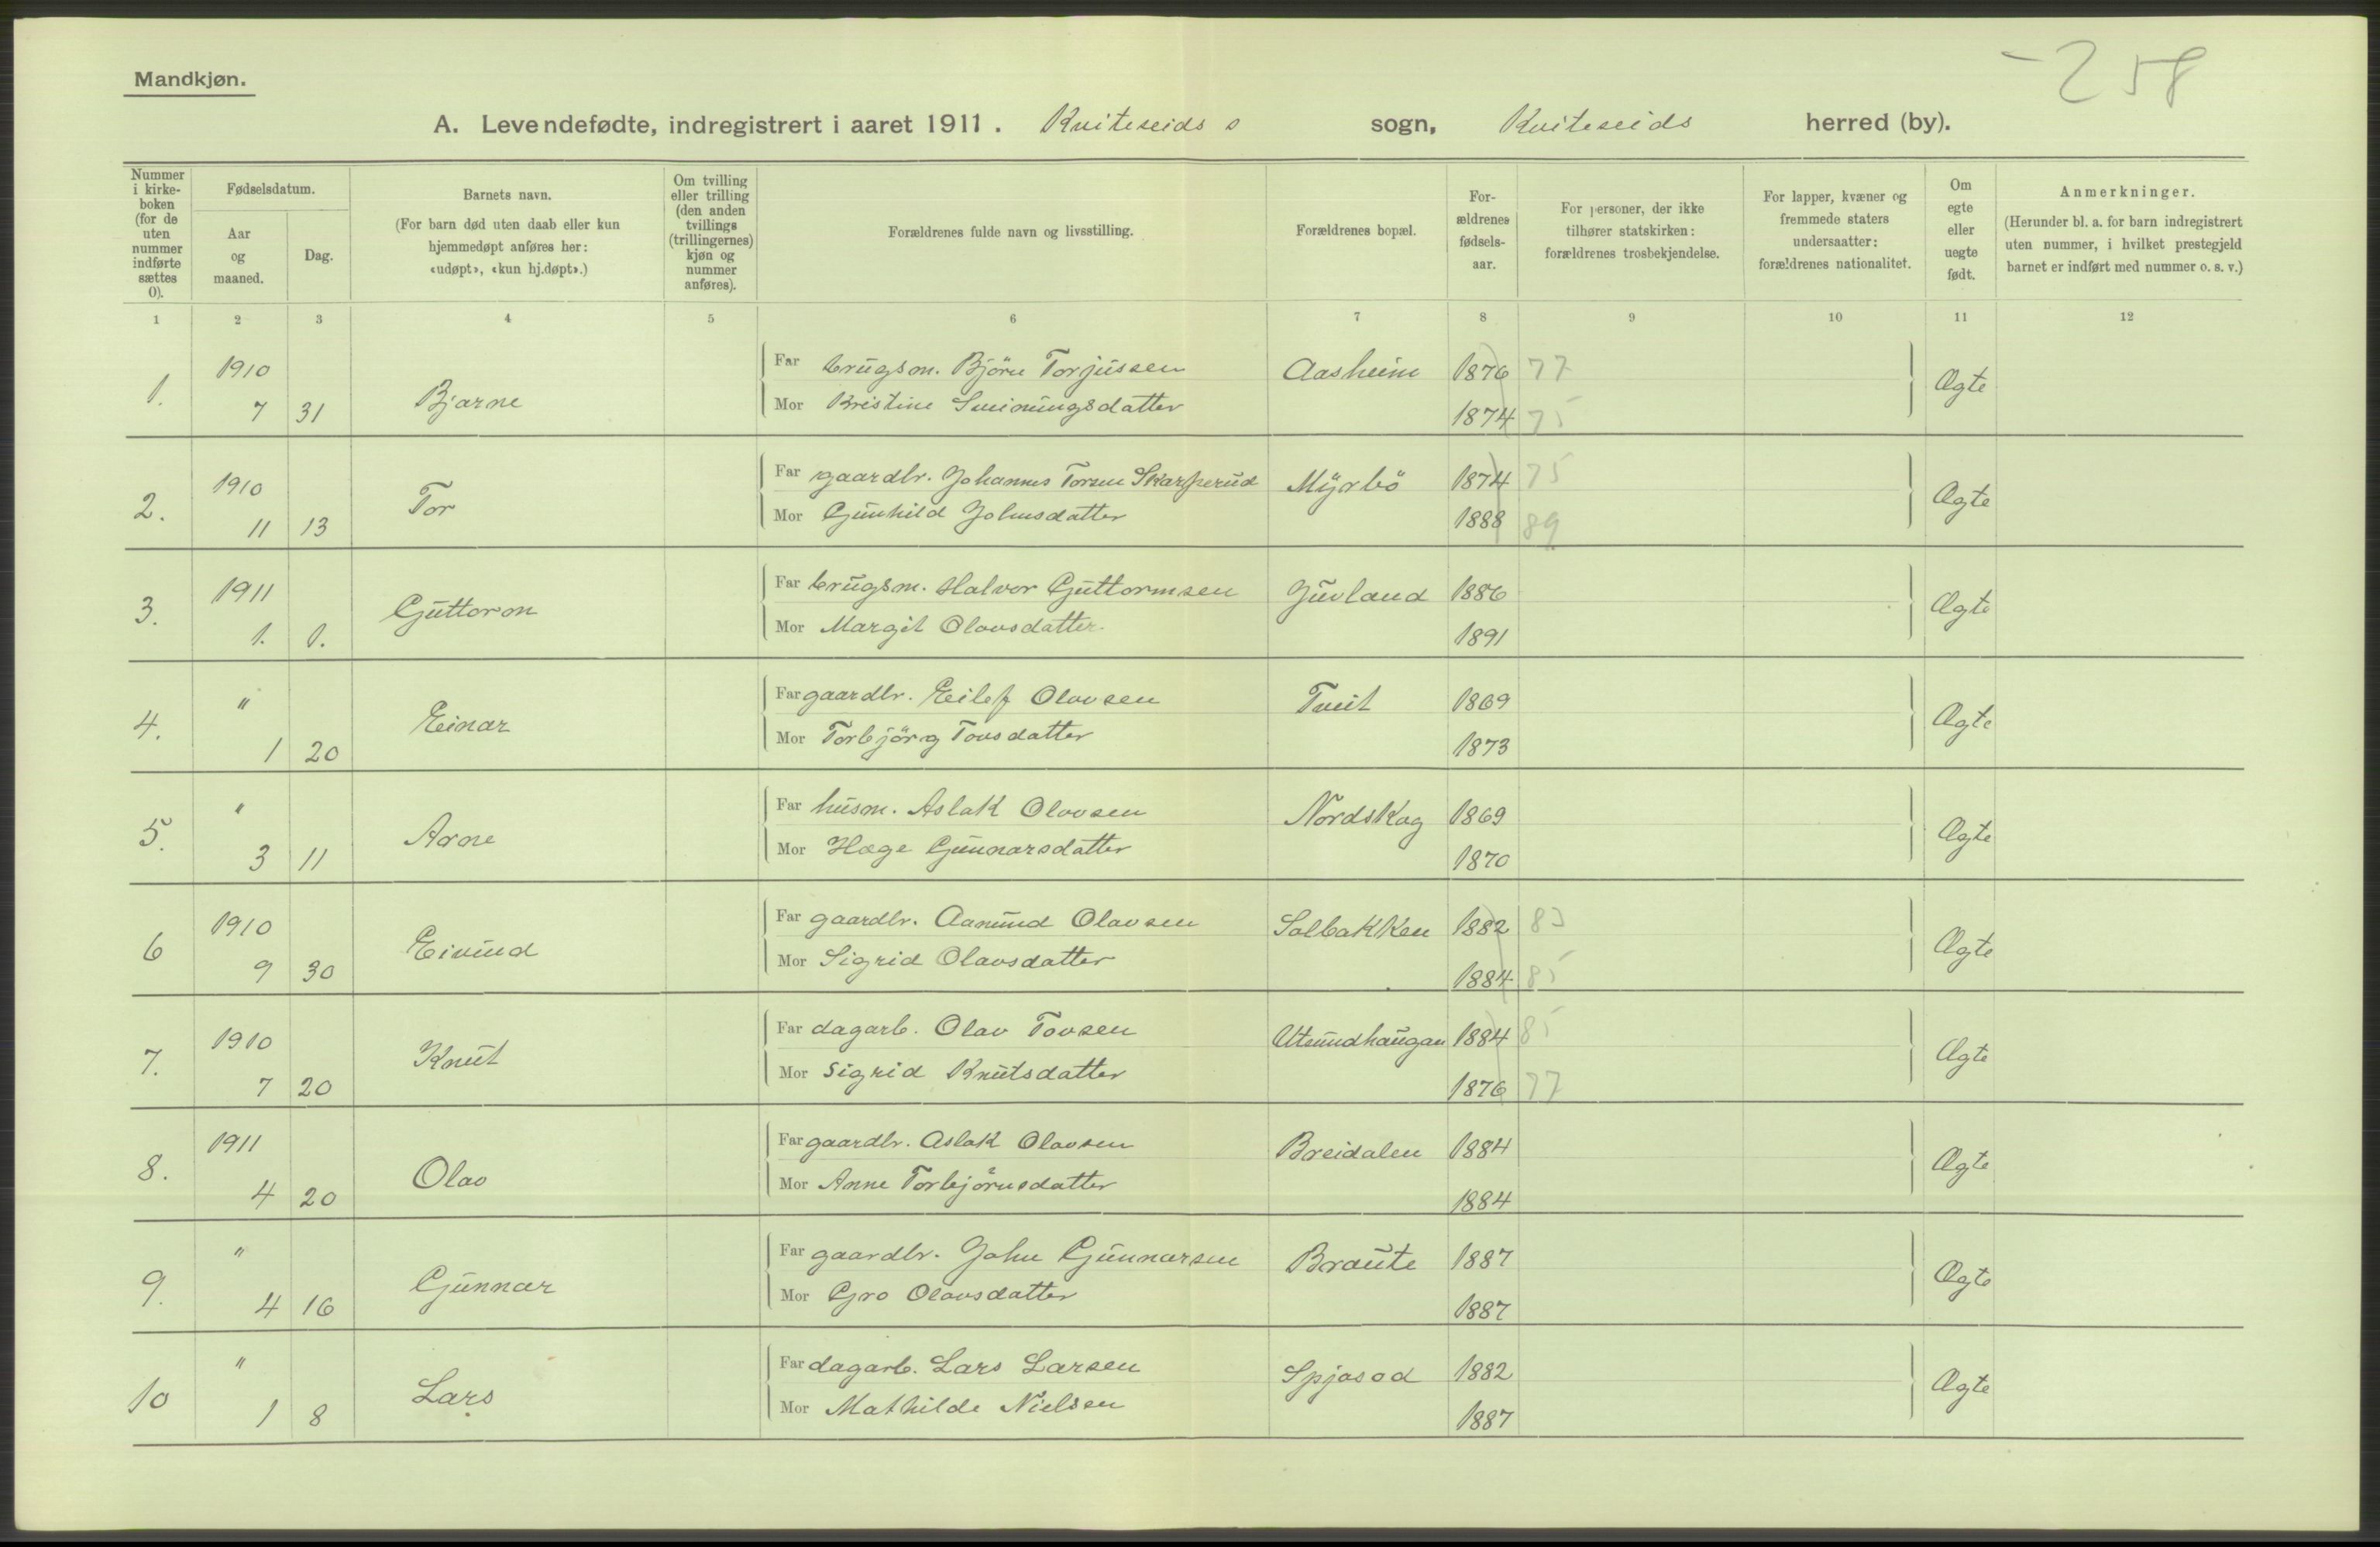 -258
Mandkjøn.
A. Levendefødte, indregistrert i aaret 1911. Kviteseids s sogn, Kviteseids herred (by).
Nummer i kirke-boken (for de uten nummer indførte sættes 0).
Fødselsdatum.
Aar og maaned.
Dag.
Barnets navn.
(For barn død uten daab eller kun hjemmedøpt anføres her: «udøpt», «kun hj.døpt».)
Om tvilling eller trilling (den anden tvillings (trillingernes) kjøn og nummer anføres).
Forældrenes fulde navn og livsstilling.
Forældrenes bopæl.
For-ældrenes fødsels-aar.
For personer, der ikke tilhører statskirken: forældrenes trosbekjendelse.
For lapper, kvæner og fremmede staters undersaatter: forældrenes nationalitet.
Om egte eller uegte født.
Anmerkninger.
(Herunder bl. a. for barn indregistrert uten nummer, i hvilket prestegjeld barnet er indført med nummer o. s. v.)
1 2 3 4 5 6 7 8 9 10 11 12
1. 1910 7 31 Bjarne Far brugsm. Björn Torjussen Aasheim 1876 77 Ægte
Mor Kristine Sveinungsdatter 1874 75
2. 1910 11 13 Tor Far gaardbr. Johannes Torsen Skarperud Myrbö 1874 75 Ægte
Mor Gunhild Johnsdatter 1888 89
3. 1911 1. 1. Guttorm Far brugsm. Halvor Guttormsen Juvland 1886 Ægte
Mor Margit Olavsdatter 1891
4. " 1 20 Einar Far gaardbr. Eilef Olavsen Tveit 1869 Ægte
Mor Torbjörg Tovsdatter 1873
5. " 3 11 Arne Far husm. Aslak Olavsen Nordskog 1869 Ægte
Mor Hæge Gunnarsdatter 1870
6 1910 9 30 Eivind Far gaardbr. Aamund Olavsen Solbakken 1882 83 Ægte
Mor Sigrid Olavsdatter 1884 85
7. 1910 7 20 Knut Far dagarb. Olav Tovsen 1884 85 Ægte
Mor Sigrid Knutsdatter 1876 77
8. 1911 4 20 Olav Far gaardbr. Aslak Olavsen Breidalen 1884 Ægte
Mor Anne Torbjörnsdatter 1884
9. " 4 16 Gunnar Far gaardbr. John Gunnarsen Braute 1887 Ægte
Mor Gro Olavsdatter 1887
10 " 1 8 Lars Far dagarb. Lars Larsen Spjosod 1882 Ægte
Mor Mathilde Nielsen 1887